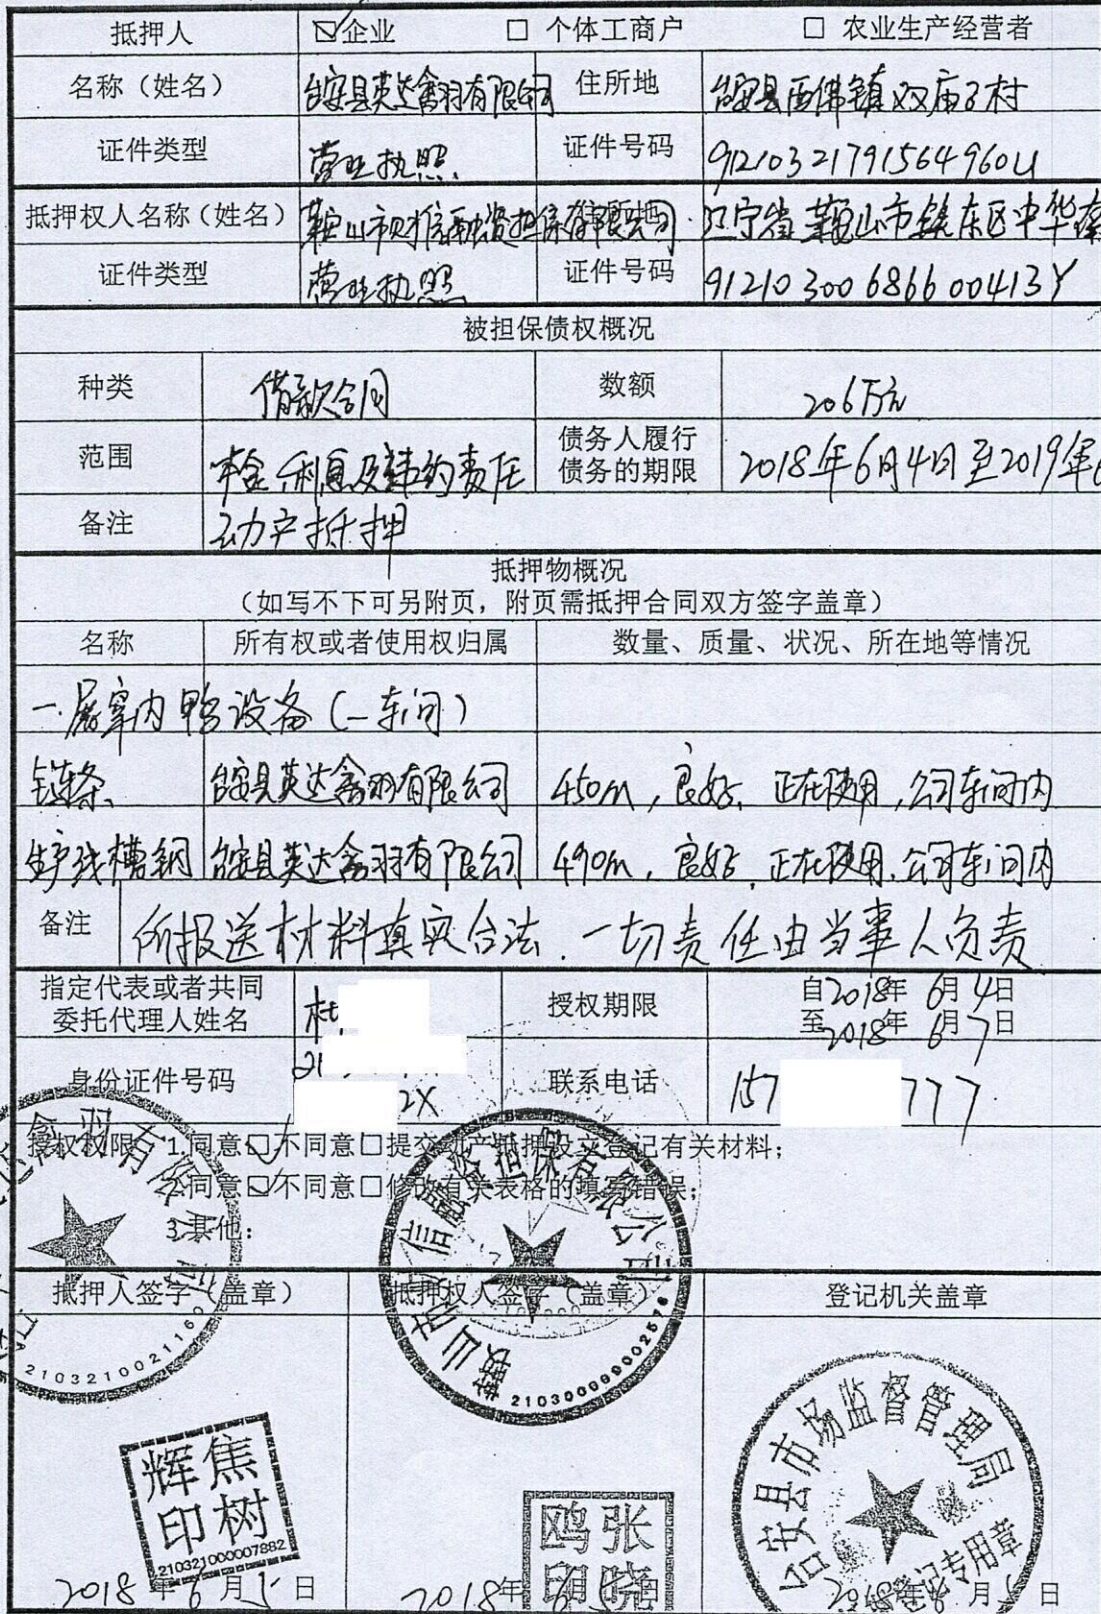 抵押人 ☑企业 □ 个体工商户 □ 农业生产经营者
名称（姓名） 台安县英达禽羽有限公司 住所地 台安县西佛镇双庙子村
证件类型 营业执照 证件号码 91210321791564960U
抵押权人名称（姓名） 鞍山市财信融资担保有限公司 住所地 辽宁省鞍山市铁东区中华
证件类型 营业执照 证件号码 91210300686600413Y
被担保债权概况
种类 借款合同 数额 206万元
范围 本金利息及违约责任 债务人履行
债务的期限 2018年6月4日至2019年6
备注 动产抵押
抵押物概况
（如写不下可另附页，附页需抵押合同双方签字盖章）
名称 所有权或者使用权归属 数量、质量、状况、所在地等情况
一.屠宰内鸭设备(一车间)
链条 台安县英达禽羽有限公司 450m，良好，正在使用，公司车间内
生产线槽钢 台安县英达禽羽有限公司 490m，良好，正在使用，公司车间内
备注 所报送材料真实合法．一切责任由当事人负责
指定代表或者共同
委托代理人姓名 杜 授权期限 自2018年 6月 4日
至2018年 6月 7日
身份证件号码 21
2X 联系电话 157 777
授权权限：1.同意□不同意□提交动产抵押设立登记有关材料；
2.同意☑不同意□修改有关表格的填写错误；
3.其他：
抵押人签字（盖章） 抵押权人签字（盖章） 登记机关盖章
禽羽有限
2103210021160
鞍山市财信融资担保有限公司
210300000002576
焦树辉印
210321000007882
张晓鸥印
台安县市场监督管理局
登记专用章
2018年6月5日 2018年6月5日 2018年6月5日